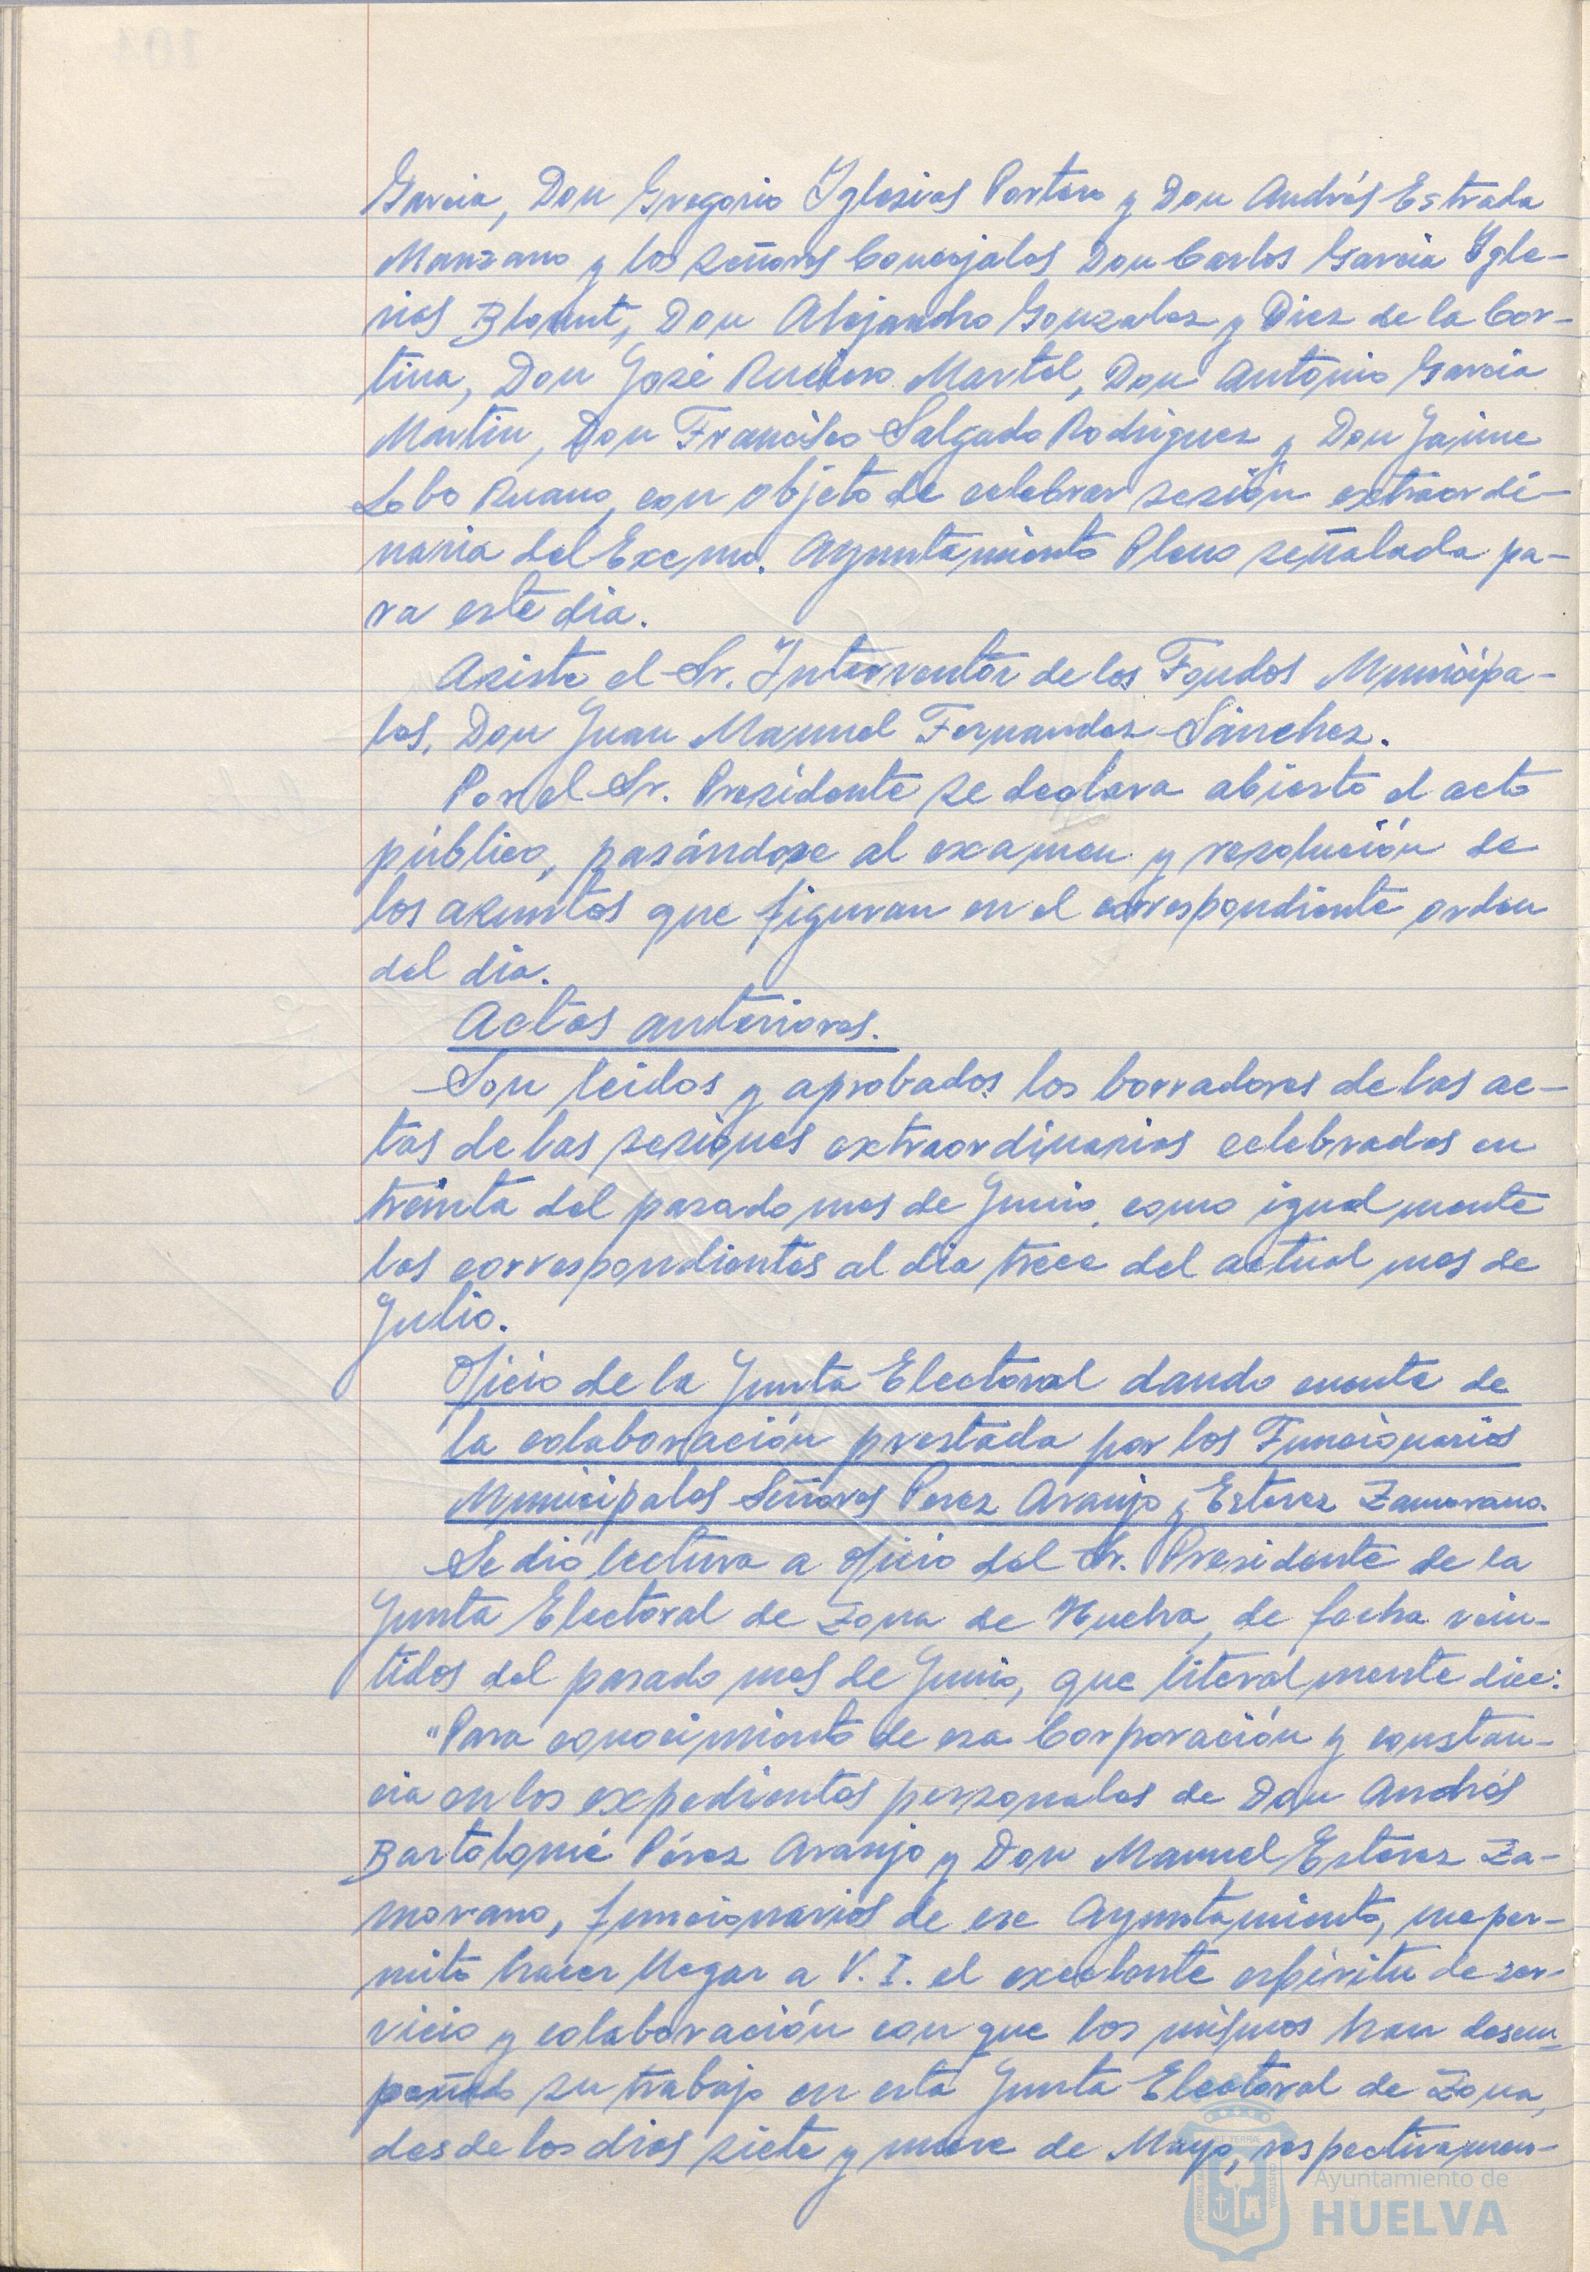 Garcia, Don Gregorio Iglesias Portero y Don Andrés Estrada
Manzano y los señores Concejales Don Carlos Garcia Igle-
sias Blount, Don Alejandro Gonzalez y Diez de la Cor-
tina, Don José Rucero Martel, Don Antonio Garcia
Martin, Don Francisco Salgado Rodriguez y Don Jaime
Lobo Ruano, con objeto de celebrar sesión extraordi-
naria del Excmo. Ayuntamiento Pleno señalada pa-
ra este dia.
Asiste el Sr. Interventor de los Fondos Municipa-
les, Don Juan Manuel Fernandez Sánchez.
Por el Sr. Presidente se declara abierto el acto
público, pasándose al examen y resolución de
los asuntos que figuran en el correspondiente orden
del dia.
Actas anteriores.
Son leidos y aprobados los borradores de las ac-
tas de las sesiones extraordinarias celebradas en
treinta del pasado mes de Junio, como igualmente
las correspondientes al dia trece del actual mes de
Julio.
Oficio de la Junta Electoral dando cuenta de
la colaboración prestada por los Funcionarios
Municipales Señores Perez Araujo y Estevez Zamorano.
Se dió lectura a oficio del Sr. Presidente de la
Junta Electoral de Zona de Huelva, de fecha vein-
tidos del pasado mes de Junio, que literalmente dice:
"Para conocimiento de esa Corporación y constan-
cia en los expedientes personales de Don Andrés
Bartolomé Pérez Araujo y Don Manuel Estevez Za-
morano, funcionarios de ese Ayuntamiento, me per-
mito hacer llegar a V. I. el excelente espiritu de ser-
vicio y colaboración con que los mismos han desem-
peñado su trabajo en esta Junta Electoral de Zona,
desde los dias siete y nueve de Mayo, respectivamen-
Ayuntamiento de
HUELVA